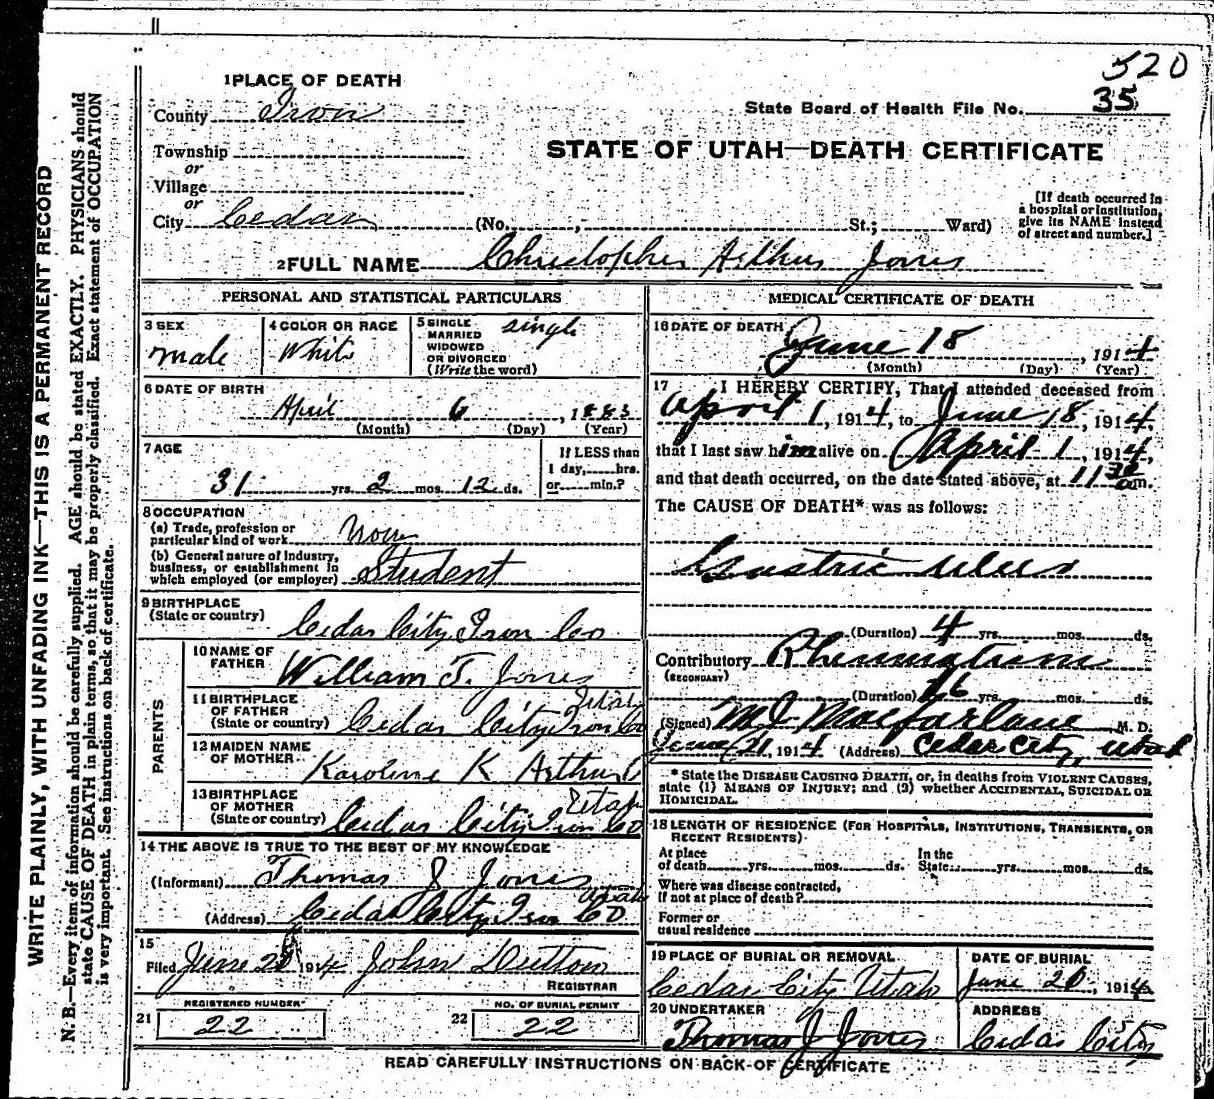 520
1 PLACE OF DEATH
County Iron
State Board of Health File No. 35
Township
or
Village
or
City Cedar (No. , St.; Ward)
STATE OF UTAH—DEATH CERTIFICATE
[If death occurred in
a hospital or institution,
give its NAME instead
of street and number.]
2 FULL NAME Christopher Arthur Jones
PERSONAL AND STATISTICAL PARTICULARS
3 SEX male
4 COLOR OR RACE White
5 SINGLE
MARRIED
WIDOWED
OR DIVORCED
(Write the word) single
6 DATE OF BIRTH
April 6, 1883
(Month) (Day) (Year)
7 AGE
31 yrs. 2 mos. 12 ds.
If LESS than
1 day, hrs.
or min.?
8 OCCUPATION
(a) Trade, profession or
particular kind of work
(b) General nature of industry,
business, or establishment in
which employed (or employer) Student
9 BIRTHPLACE
(State or country) Cedar City Iron Co
PARENTS
10 NAME OF
FATHER William T. Jones
11 BIRTHPLACE
OF FATHER
(State or country) Cedar City Iron Co Utah
12 MAIDEN NAME
OF MOTHER Karoline K Arthur
13 BIRTHPLACE
OF MOTHER
(State or country) Cedar City Iron Co Utah
14 THE ABOVE IS TRUE TO THE BEST OF MY KNOWLEDGE
(Informant) Thomas J Jones
(Address) Cedar City Iron Co Utah
15
Filed June 1914 John Dutton
REGISTRAR
REGISTERED NUMBER
21 22
NO. OF BURIAL PERMIT
22 22
MEDICAL CERTIFICATE OF DEATH
16 DATE OF DEATH June 18, 1914
(Month) (Day) (Year)
17 I HEREBY CERTIFY, That I attended deceased from
April 1, 1914, to June 18, 1914,
that I last saw him alive on April 1, 1914,
and that death occurred, on the date stated above, at 11 30 am.
The CAUSE OF DEATH* was as follows:
Gastric ulcer
(Duration) 4 yrs. mos. ds.
Contributory Rheumatism
(SECONDARY)
(Duration) yrs. mos. ds.
(Signed) M J Macfarlane, M. D.
June 21, 1914 (Address) Cedar City, Utah
* State the DISEASE CAUSING DEATH, or, in deaths from VIOLENT CAUSES,
state (1) MEANS OF INJURY; and (2) whether ACCIDENTAL, SUICIDAL OR
HOMICIDAL.
18 LENGTH OF RESIDENCE (FOR HOSPITALS, INSTITUTIONS, TRANSIENTS, OR
RECENT RESIDENTS)
At place
of death yrs. mos. ds.
In the
State yrs. mos. ds.
Where was disease contracted,
if not at place of death?
Former or
usual residence
19 PLACE OF BURIAL OR REMOVAL
Cedar City Utah
DATE OF BURIAL
June 20, 1914
20 UNDERTAKER
Thomas J Jones
ADDRESS
Cedar City
READ CAREFULLY INSTRUCTIONS ON BACK OF CERTIFICATE
WRITE PLAINLY, WITH UNFADING INK—THIS IS A PERMANENT RECORD
N. B.—Every item of information should be carefully supplied. AGE should be stated EXACTLY. PHYSICIANS should
state CAUSE OF DEATH in plain terms, so that it may be properly classified. Exact statement of OCCUPATION
is very important. See instructions on back of certificate.